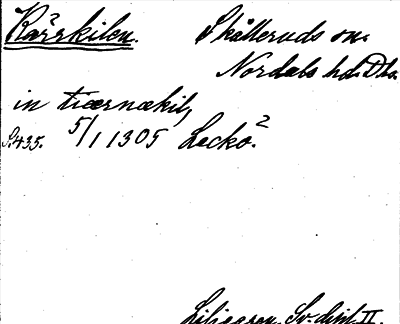 Kärrkilen. Skålleruds sn.
Nordals hd. Dls.
in tiærnækil,
S. 435. 5/1 1305 Leckö.2
Liljegren, Sv. dipl. II.